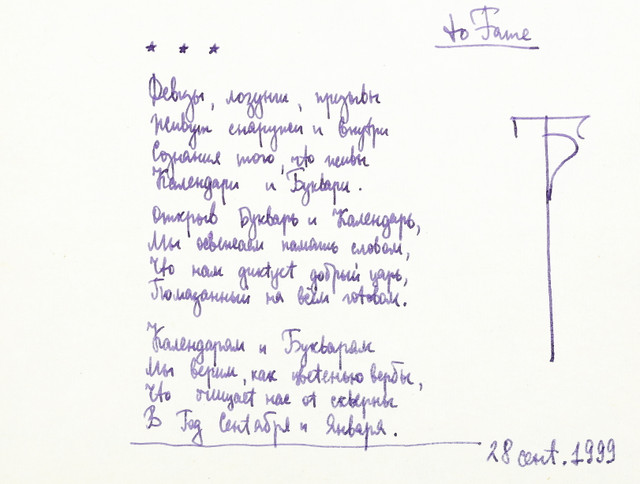 to Fame
* * *
Девизы, лозунги, призывы
Живут снаружи и внутри
Сознания того, что живы
Календари и Буквари.
Открыв Букварь и Календарь,
Мы освежаем память словом,
Что нам диктует добрый царь,
Помазанный на всём готовом.
Календарям и Букварям
Мы верим, как цветенью вербы,
Что очищает нас от скверны
В Год Сентября и Января.
28 сент. 1999